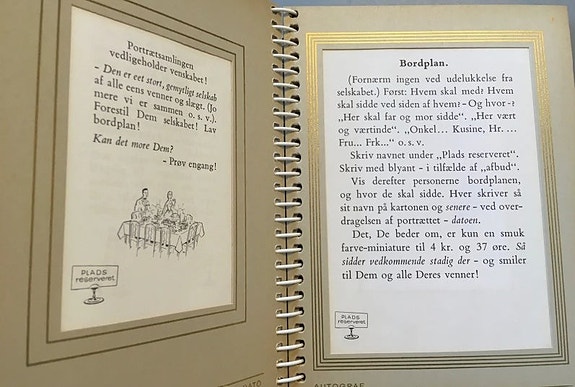 Portrætsamlingen
vedligeholder venskabet!
- Den er eet stort, gemytligt selskab
af alle eens venner og slægt. (Jo
mere vi er sammen o. s. v.).
Forestil Dem selskabet! Lav
bordplan!
Kan det more Dem?
- Prøv engang!
PLADS
reserveret
Bordplan.
(Fornærm ingen ved udelukkelse fra
selskabet.) Først: Hvem skal med? Hvem
skal sidde ved siden af hvem? - Og hvor-?
„Her skal far og mor sidde“. „Her vært
og værtinde“. „Onkel... Kusine, Hr. ...
Fru... Frk...“ o. s. v.
Skriv navnet under „Plads reserveret“.
Skriv med blyant - i tilfælde af „afbud“.
Vis derefter personerne bordplanen,
og hvor de skal sidde. Hver skriver så
sit navn på kartonen og senere - ved over-
dragelsen af portrættet - datoen.
Det, De beder om, er kun en smuk
farve-miniature til 4 kr. og 37 øre. Så
sidder vedkommende stadig der - og smiler
til Dem og alle Deres venner!
PLADS
reserveret
AUTOGRAF